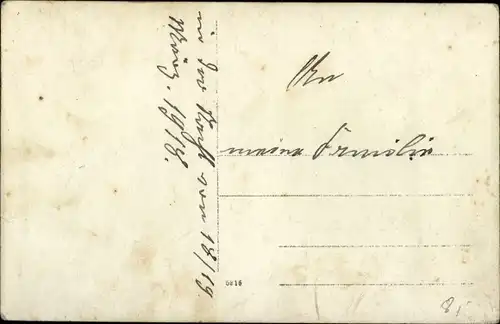 in der Nacht vom 18/19.
März. 1918.
An
meine Familie
0216